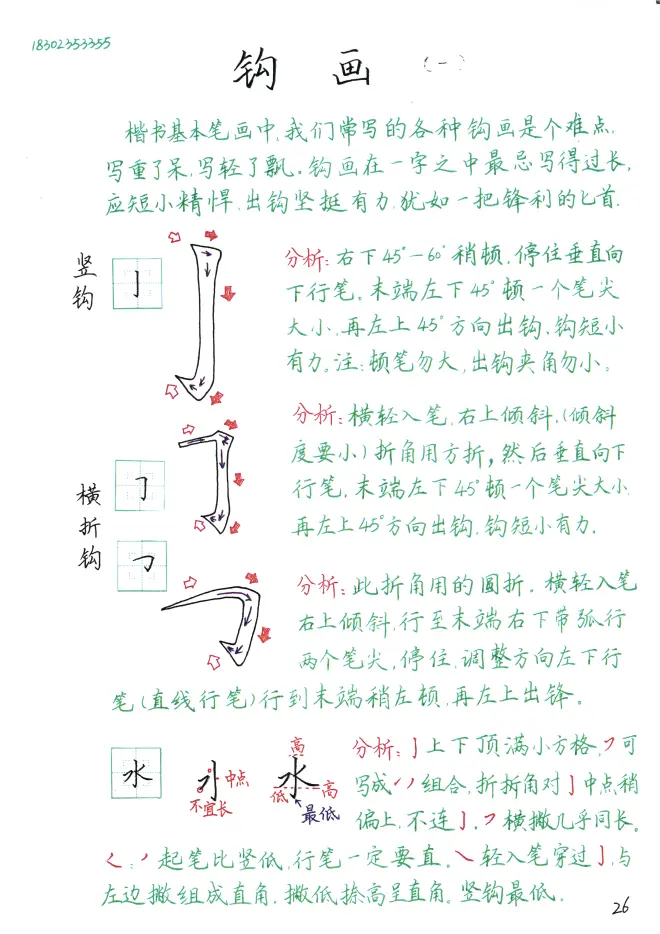 18302353355
钩 画 (一)
楷书基本笔画中,我们常写的各种钩画是个难点,
写重了呆,写轻了飘。钩画在一字之中最忌写得过长,
应短小精悍,出钩坚挺有力,犹如一把锋利的匕首.
竖钩
亅
分析:右下45°-60°稍顿,停住垂直向
下行笔。末端左下45°顿一个笔尖
大小,再左上45°方向出钩,钩短小
有力。注:顿笔勿大,出钩夹角勿小。
横折钩
分析:横轻入笔,右上倾斜,(倾斜
度要小)折角用方折,然后垂直向下
行笔,末端左下45°顿一个笔尖大小
再左上45°方向出钩,钩短小有力.
分析:此折角用的圆折.横轻入笔
右上倾斜,行至末端右下带弧行
两个笔尖,停住,调整方向左下行
笔(直线行笔)行到末端稍左顿,再左上出锋。
水
中点
不宜长
高
水
低
高
最低
分析:亅上下顶满小方格,㇇可
写成㇀㇒组合,折折角对亅中点稍
偏上,不连亅,㇇横撇几乎同长。
㇛:㇒起笔比竖低,行笔一定要直,㇏轻入笔穿过亅,与
左边撇组成直角,撇低捺高呈直角.竖钩最低.
26